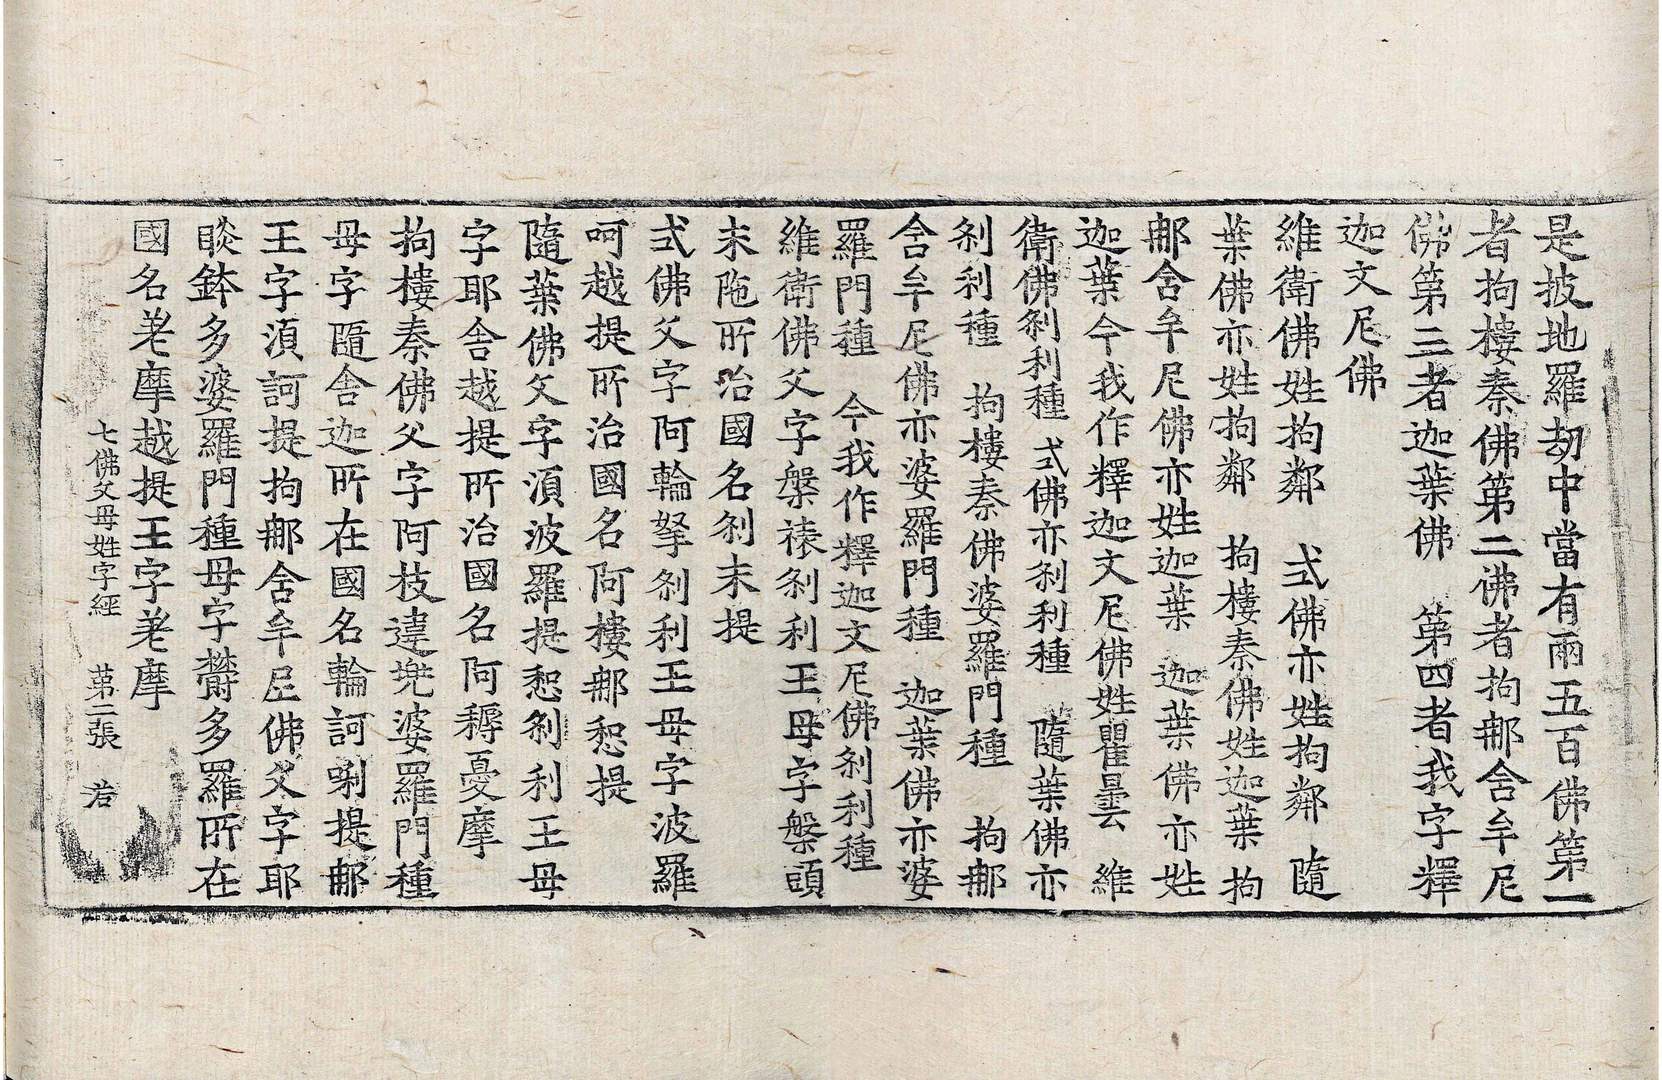 是披地羅劫中當有兩五百佛第一
者拘樓秦佛第二佛者拘那舍牟尼
佛第三者迦葉佛　第四者我字釋
迦文尼佛
維衛佛姓拘鄰　式佛亦姓拘鄰　隨
葉佛亦姓拘鄰　拘樓秦佛姓迦葉　拘
那舍牟尼佛亦姓迦葉　迦葉佛亦姓
迦葉今我作釋迦文尼佛姓瞿曇　維
衛佛剎利種　式佛亦剎利種　隨葉佛亦
剎利種　拘樓秦佛婆羅門種　拘那
舍牟尼佛亦婆羅門種　迦葉佛亦婆
羅門種　今我作釋迦文尼佛剎利種
維衛佛父字槃裱剎利王母字槃頭
末陁所治國名剎末提
式佛父字阿輪拏剎利王母字波羅
呵越提所治國名阿樓那惒提
隨葉佛父字湏波羅提惒剎利王母
字耶舍越提所治國名阿耨憂摩
拘樓秦佛父字阿枝違兠婆羅門種
母字隨舍迦所在國名輪訶唎提那
王字湏訶提拘那舍牟尼佛父字耶
睒鉢多婆羅門種母字欝多羅所在
國名差摩越提王字差摩
七佛父母姓字經　第二張　若